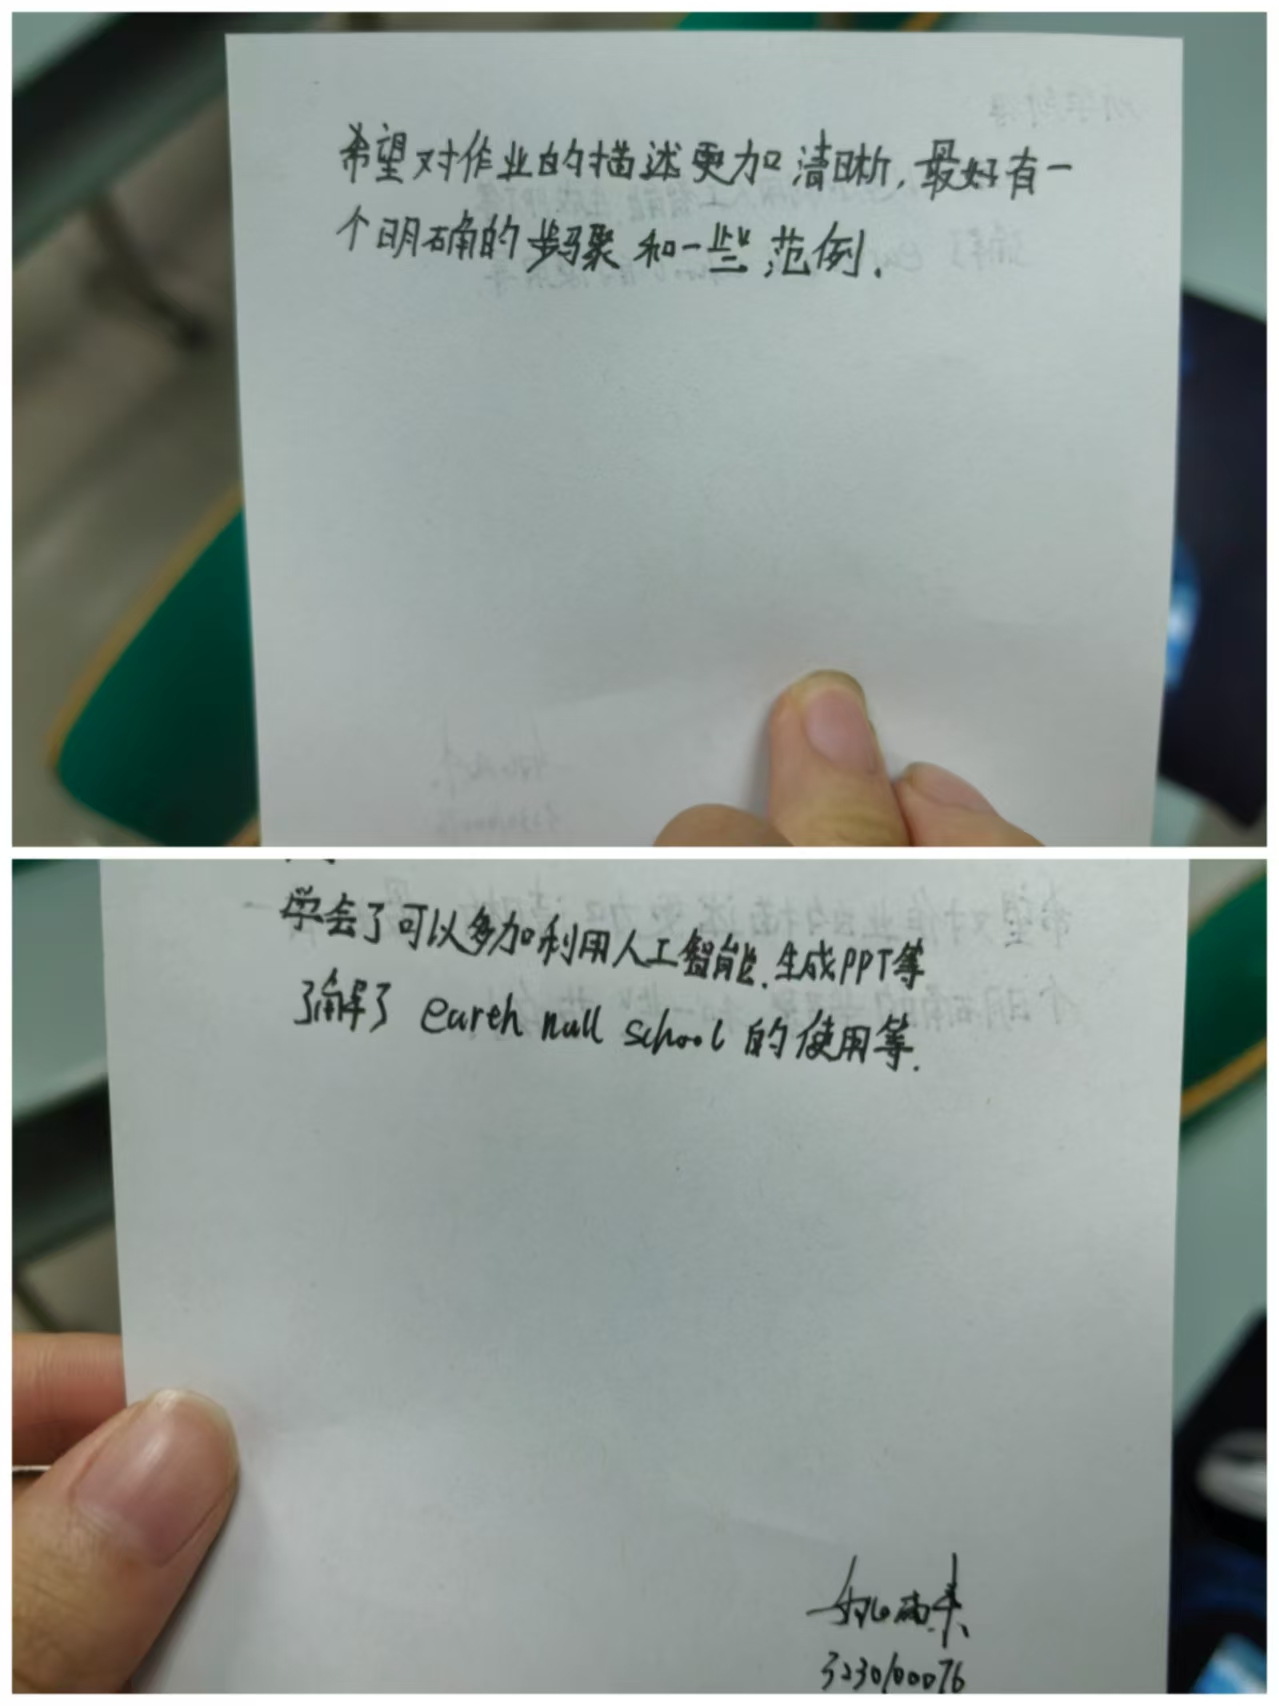 希望对作业的描述更加清晰,最好有一
个明确的步骤和一些范例.
学会了可以多加利用人工智能.生成PPT等
了解了 earth null school 的使用等.
3230100076